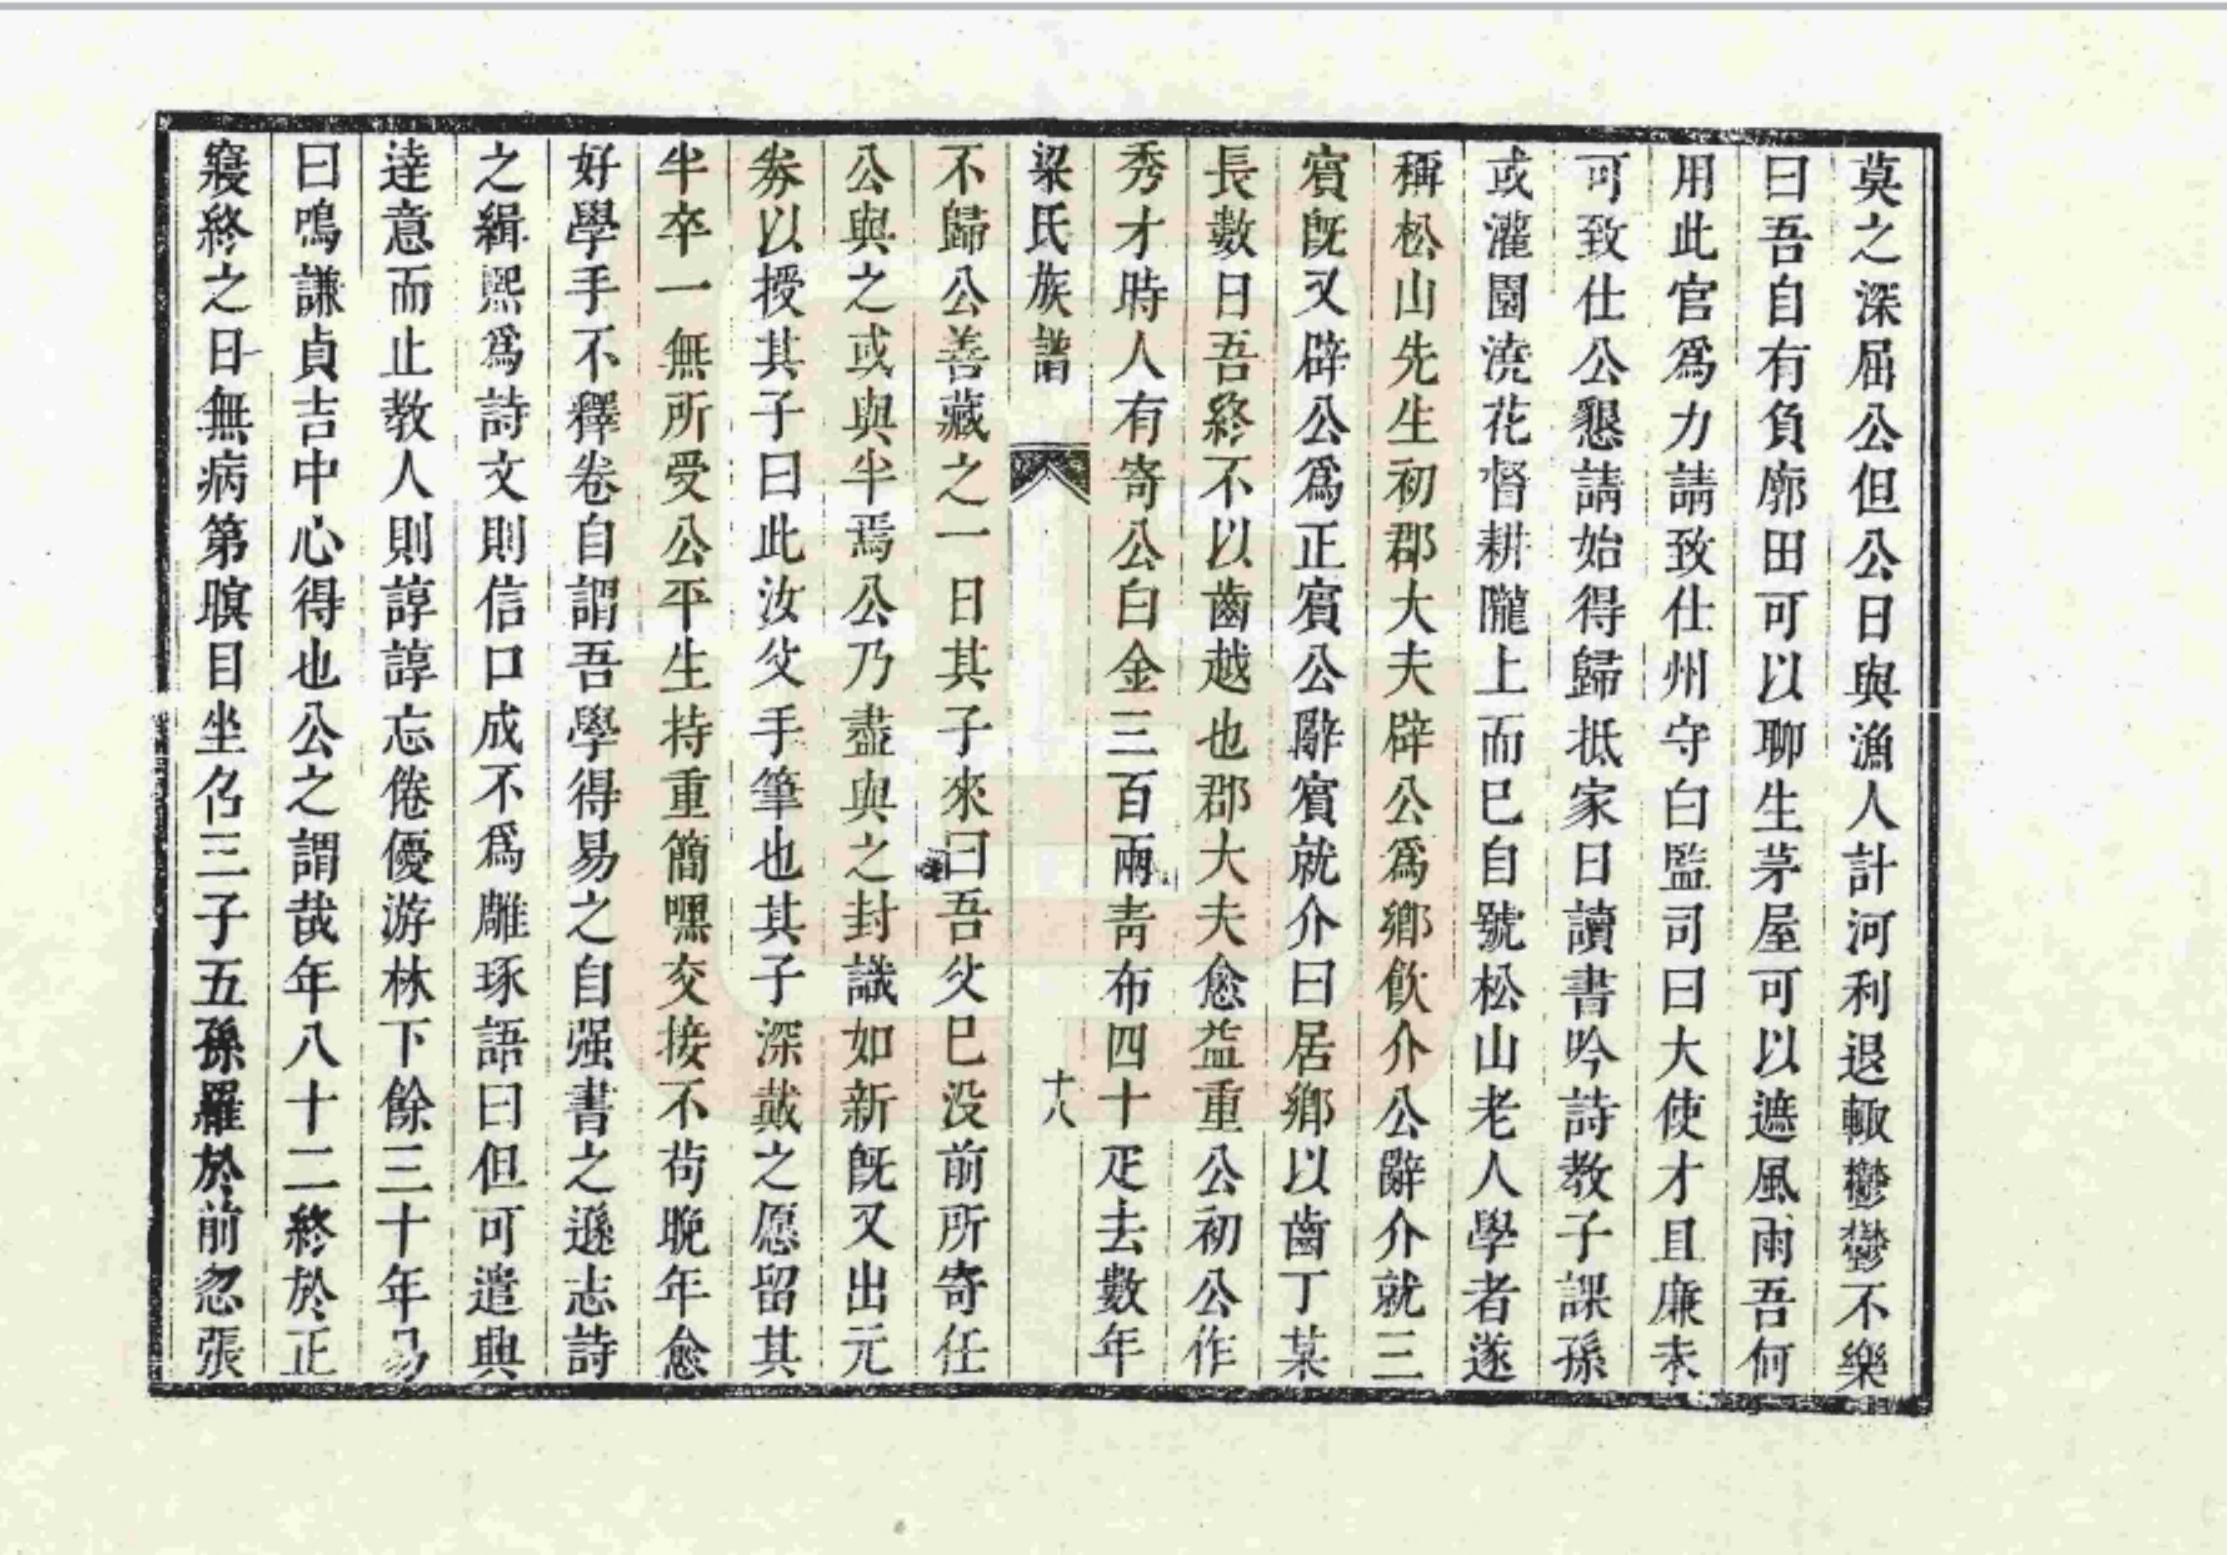 莫之深屈公但公日與漁人計河利退輙鬱鬱不樂
曰吾自有負廓田可以聊生茅屋可以遮風雨吾何
用此官爲力請致仕州守白監司曰大使才且廉未
可致仕公懇請始得歸抵家日讀書吟詩教子課孫
或灌園澆花督耕隴上而已自號松山老人學者遂
稱松山先生初郡大夫辟公爲鄉飲介公辭介就三
賓旣又辟公爲正賓公辭賓就介曰居鄉以齒丁某
長數日吾終不以齒越也郡大夫愈益重公初公作
秀才時人有寄公白金三百兩青布四十疋去數年
梁氏族譜 十八
不歸公善藏之一日其子來曰吾父已没前所寄任
公與之或與半焉公乃盡與之封識如新旣又出元
劵以授其子曰此汝父手筆也其子深戴之愿留其
半卒一無所受公平生持重簡嘿交接不苟晚年愈
好學手不釋卷自謂吾學得易之自强書之遜志詩
之緝熙爲詩文則信口成不爲雕琢語曰但可遣興
達意而止教人則諄諄忘倦優游林下餘三十年易
曰鳴謙貞吉中心得也公之謂哉年八十二終於正
寢終之日無病第瞑目坐名三子五孫羅於前忽張